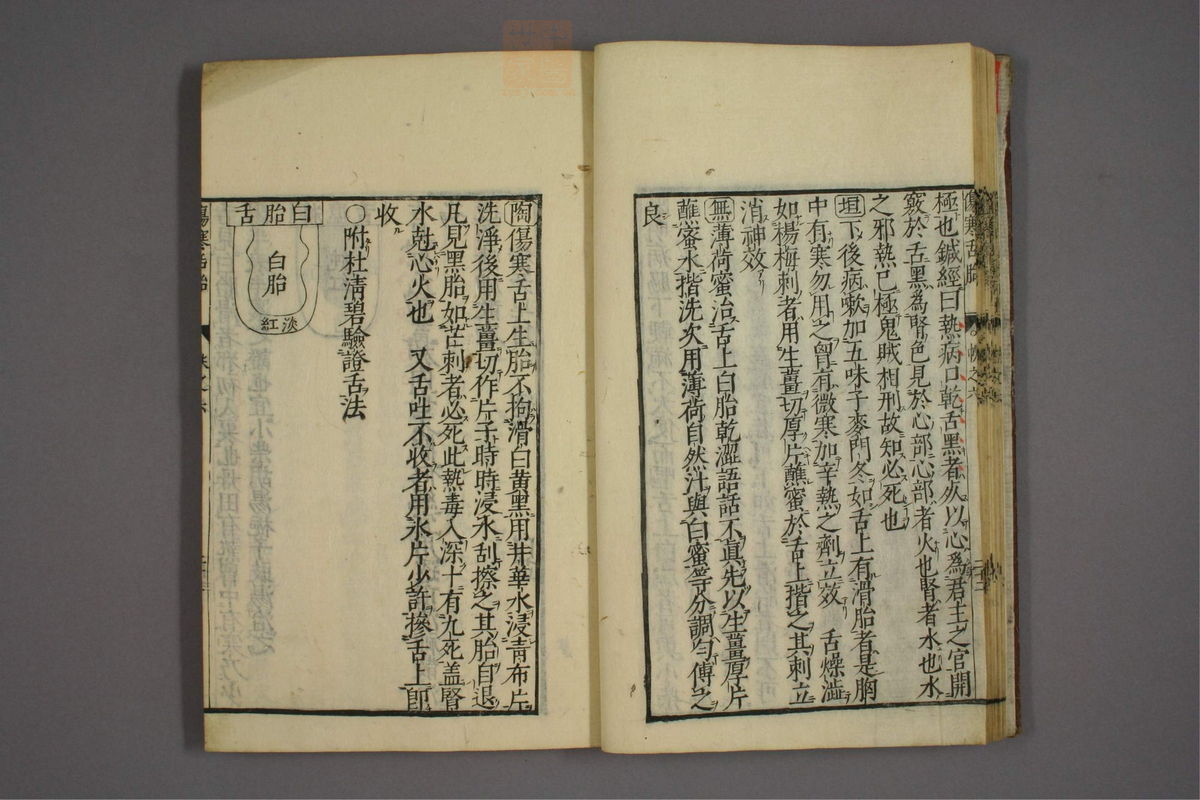 極也鍼經曰熱病口乾舌黑者死以心爲君主之官開
竅於舌黑爲腎色見於心部心部者火也腎者水也水
之邪熱已極鬼賊相刑故知必死也
垣下後病嗽加五味子麥門冬如舌上有滑胎者是胸
中有寒勿用之曾有微寒加辛熱之劑立效 舌燥澁
如楊梅刺者用生薑切厚片蘸蜜於舌上揩之其刺立
消神效
無薄荷蜜治舌上白胎乾澀語話不眞先以生薑厚片
蘸蜜水揩洗次用薄荷自然汁與白蜜等分調勻傅之
良
陶傷寒舌上生胎不拘滑白黃黑用井華水浸青布片
洗淨後用生薑切作片子時時浸水刮擦之其胎自退
凡見黑胎如芒刺者必死此熱毒入深十有九死盖腎
水尅心火也 又舌吐不收者用氷片少許摻舌上卽
收
〇附杜清碧驗證舌法
白胎舌
白胎
淡紅
傷寒舌胎